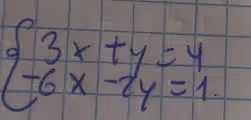 3x + y = 4
-6x - 2y = 1.